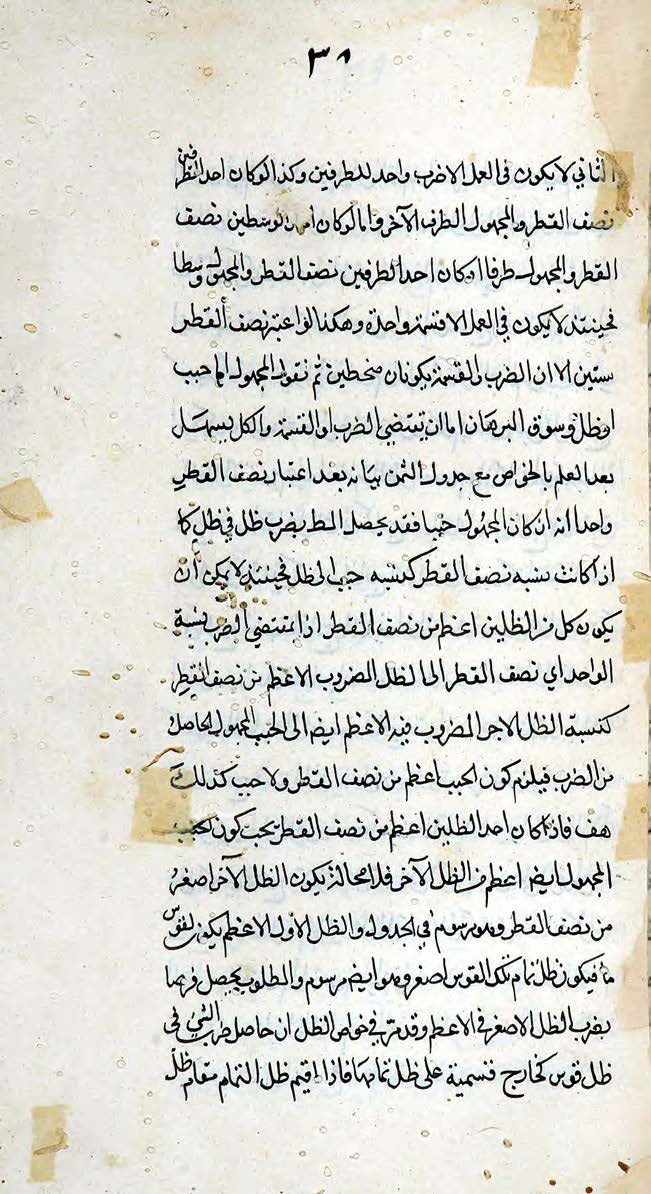 ٣٨
الثاني لا يكون في العمل الا ضرب واحد للطرفين وكذا لو كان احد الطرفين
نصف القطر والمجهول الطرف الآخر واما لو كان احد الوسطين نصف
القطر والمجهول طرفا او كان احد الطرفين نصف القطر والمجهول وسطا
فحينئذ لا يكون في العمل الا قسمة واحدة وهكذا لو اعتبر نصف القطر
ستين الا ان الضرب والقسمة يكونان منحطين ثم نقول المجهول اما جيب
او ظل وسوق البرهان اما ان يقتضي الضرب او القسمة والكل يسهل
بعد العلم بالخواص مع جدول الثمن بيانه بعد اعتبار نصف القطر
واحدا انه ان كان المجهول جيبا فقد يحصل بضرب ظل في ظل كما
اذا كانت نسبة نصف القطر كنسبة جيب الى ظل فحينئذ لا يمكن أن
يكون كل من الظلين اعظم من نصف القطر اذا يقتضي الضرب نسبة
الواحد اي نصف القطر الى الظل المضروب الاعظم من نصف القطر
كنسبة الظل الاخر المضروب فيه الاعظم ايضا الى الجيب المجهول الحاصل
من الضرب فيلزم كون الجيب اعظم من نصف القطر ولا جيب كذلك
هف فاذا كان احد الظلين اعظم من نصف القطر يجب كون الجيب
المجهول ايضا اعظم من الظل الآخر فلا محالة يكون الظل الآخر اصغر
من نصف القطر وهو مرسوم في الجدول والظل الأول الاعظم يكون لقوس
ما فيكون ظل تمام تلك القوس اصغر وهو ايضا مرسوم والمطلوب يحصل
بضرب الظل الاصغر في الاعظم وقد مر في خواص الظل ان حاصل ضرب الشئ في
ظل قوس كخارج قسمته على ظل تمامها فاذا اقيم ظل التمام مقام ظل